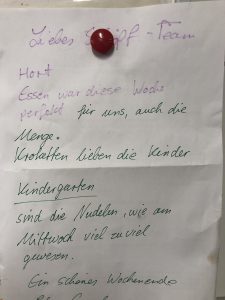 Liebes -Team
Hort
Essen war diese Woche
perfekt für uns, auch die
Menge.
Kroketten lieben die Kinder
Kindergarten
sind die Nudeln, wie am
Mittwoch viel zu viel
gewesen.
Ein schönes Wochenende